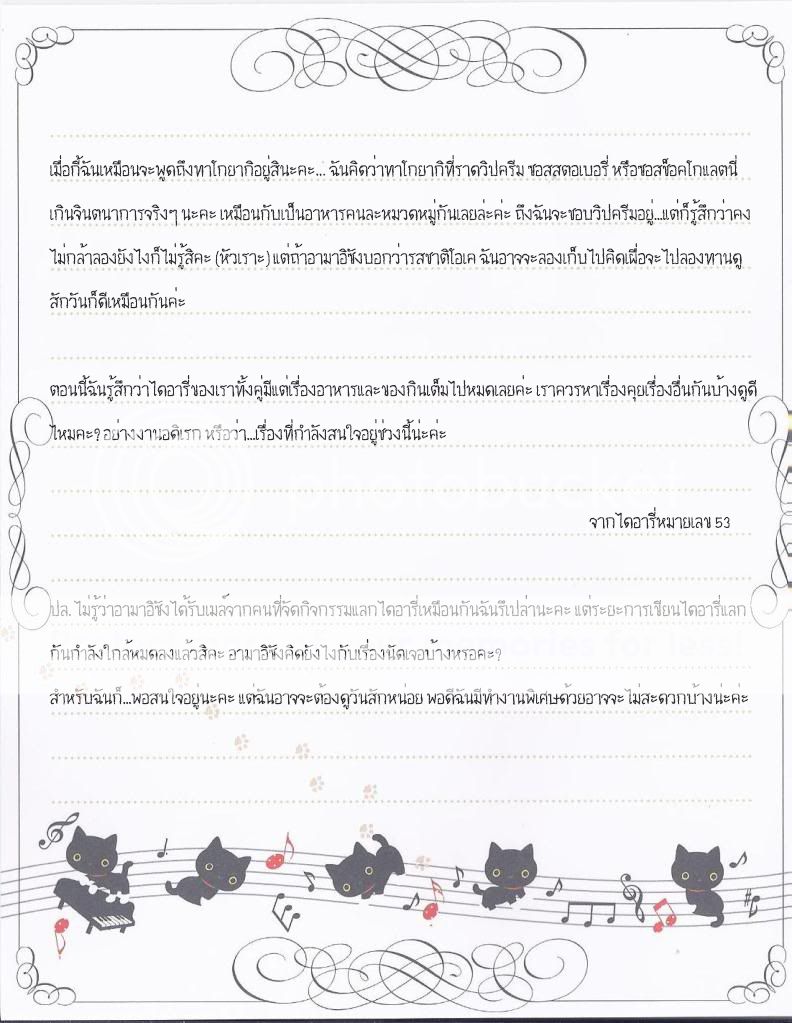 เมื่อกี้ฉันเหมือนจะพูดถึงทาโกยากิอยู่สินะคะ... ฉันคิดว่าทาโกยากิที่ราดวิปครีม ซอสสตอเบอรี่ หรือซอสช็อคโกแลตนี่
เกินจินตนาการจริงๆ นะคะ เหมือนกับเป็นอาหารคนละหมวดหมู่กันเลยล่ะค่ะ ถึงฉันจะชอบวิปครีมอยู่...แต่ก็รู้สึกว่าคง
ไม่กล้าลองยังไงก็ไม่รู้สิคะ (หัวเราะ) แต่ถ้าอามาอิซังบอกว่ารสชาติโอเค ฉันอาจจะลองเก็บไปคิดเผื่อจะไปลองทานดู
สักวันก็ดีเหมือนกันค่ะ
ตอนนี้ฉันรู้สึกว่าไดอารี่ของเราทั้งคู่มีแต่เรื่องอาหารและของกินเต็มไปหมดเลยค่ะ เราควรหาเรื่องคุยเรื่องอื่นกันบ้างดูดี
ไหมคะ? อย่างงานอดิเรก หรือว่า...เรื่องที่กำลังสนใจอยู่ช่วงนี้น่ะค่ะ
จากไดอารี่หมายเลข 53
ปล. ไม่รู้ว่าอามาอิซังได้รับเมล์จากคนที่จัดกิจกรรมแลกไดอารี่เหมือนกันฉันรึเปล่านะคะ แต่ระยะการเขียนไดอารี่แลก
กันกำลังใกล้หมดลงแล้วสิคะ อามาอิซังคิดยังไงกับเรื่องนัดเจอบ้างหรอคะ?
สำหรับฉันก็...พอสนใจอยู่นะคะ แต่ฉันอาจจะต้องดูวันสักหน่อย พอดีฉันมีทำงานพิเศษด้วยอาจจะไม่สะดวกบ้างน่ะค่ะ
photobucket